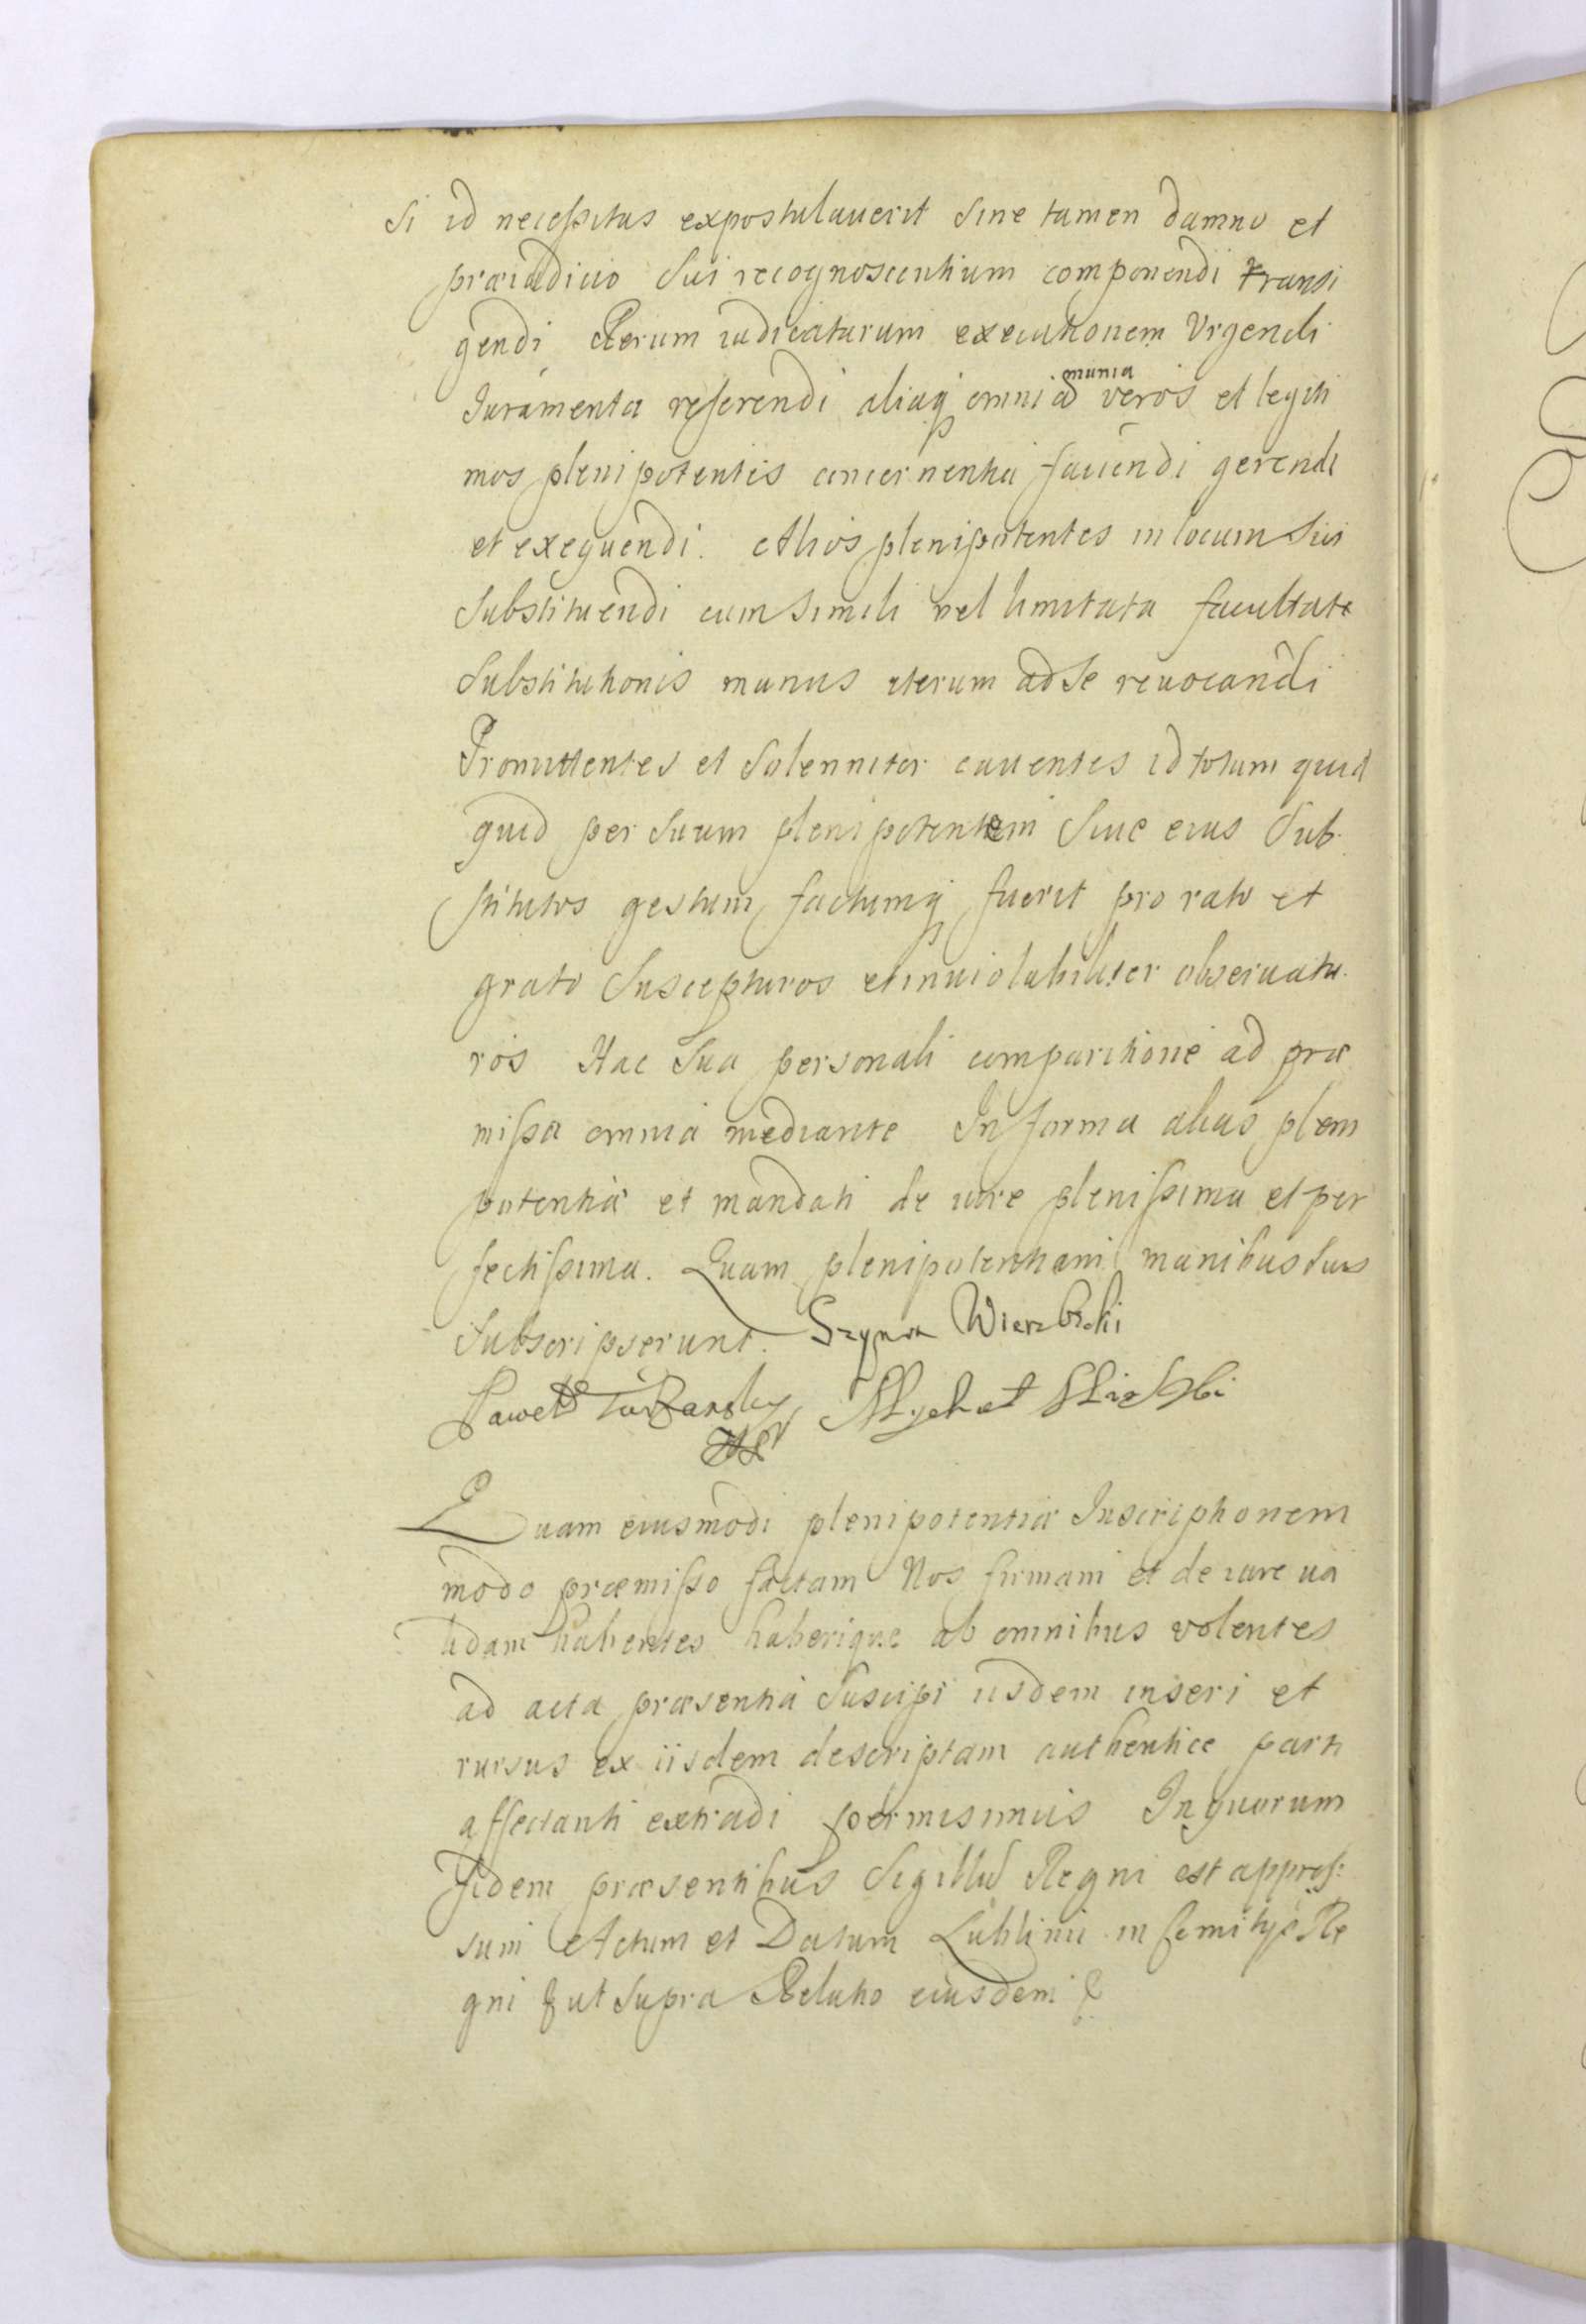 si id necessitas expostulauerit sine tamen damno et
præiudicio sui recognoscentium componendi transi
gendi Rerum iudicatarum executionem Vrgendi
Iuramenta referendi aliaq omnia ad munia veros et legiti
mos plenipotentes concernentia faciendi gerendi
et exequendi. Alios plenipotentes in locum sui
substituendi cum simili vel limitata facultate
substitutionis munus iterum ad se reuocandi
Promittentes et solenniter cauentes id totum quid
quid per suum plenipotentem siue eius sub
stitutos gestum factumq fuerit pro rato et
grato suscepturos et inuiolabiliter obseruatu
ros Hac sua personali comparitione ad præ
missa omnia mediante In forma alias pleni
potentiæ et mandati de iure plenissima et per
fectissima. Quam plenipotentiam manibus suis
subscripserunt. Szymon Wierzbicki
Paweł
Quam eiusmodi plenipotentiæ Inscriptionem
modo præmisso factam Nos firmam et de iure ua
lidam habentes haberique ab omnibus volentes
ad acta præsentia suscipi iisdem inseri et
rursus ex iisdem descriptam authentice parti
affectanti extradi permisimus In quorum
fidem præsentibus Sigillũ Regni est appres:
sum Actum et Datum Lublini in Comitijs Re
gni & ut supra Relatio eiusdem &